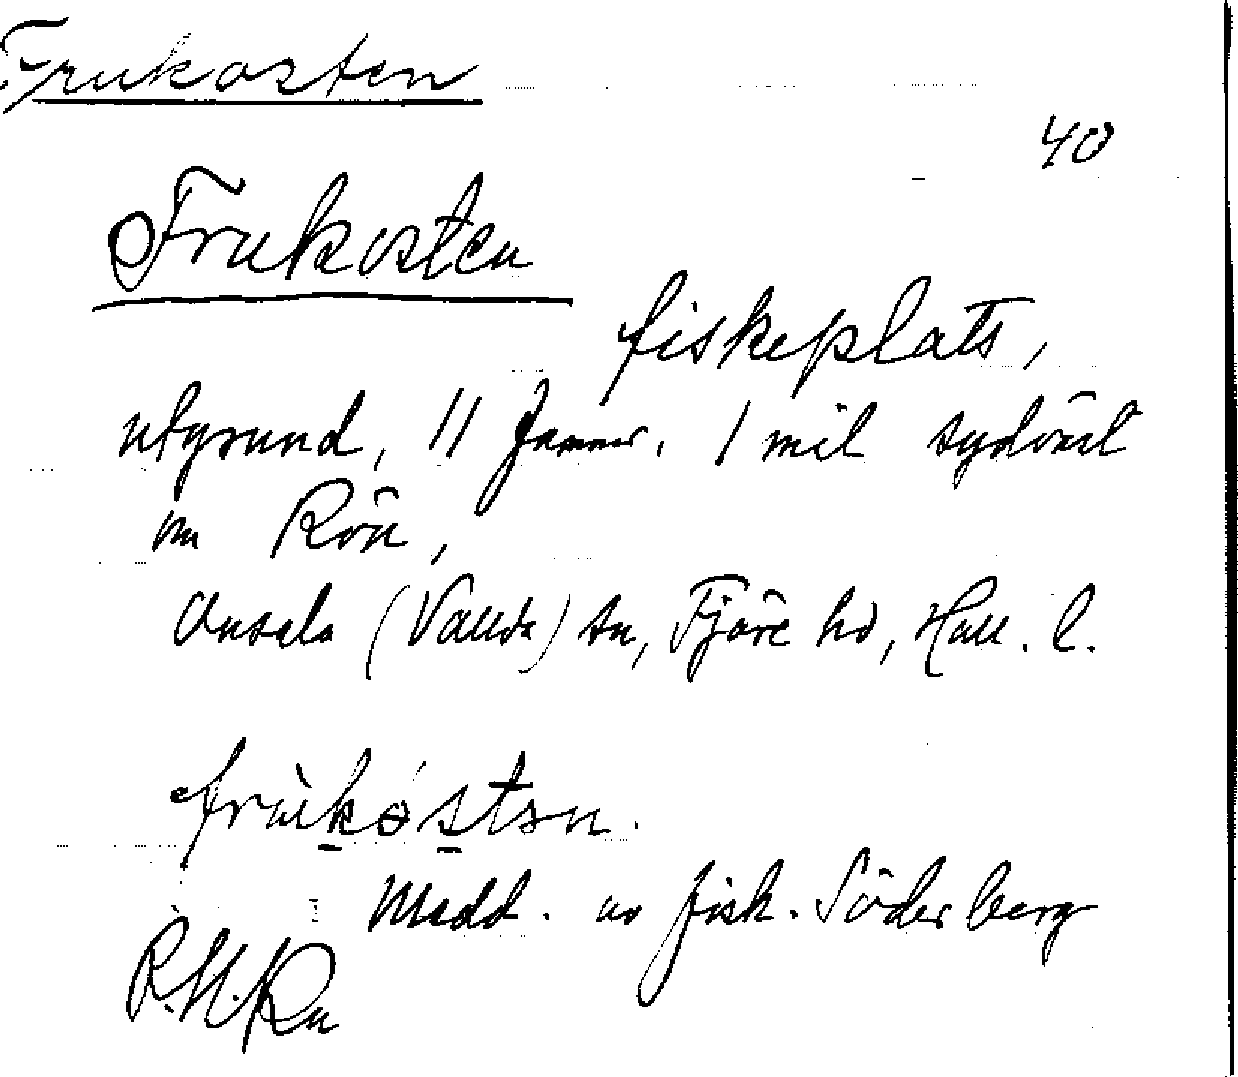 Frukosten
40
Frukosten
fiskeplats,
utgrund, 11 famnar. 1 mil sydväst
om Rön,
Onsala (Vallda) sn, Fjäre hd, Hall. l.
frùkòstən.
Medd. av fisk. Söderberg